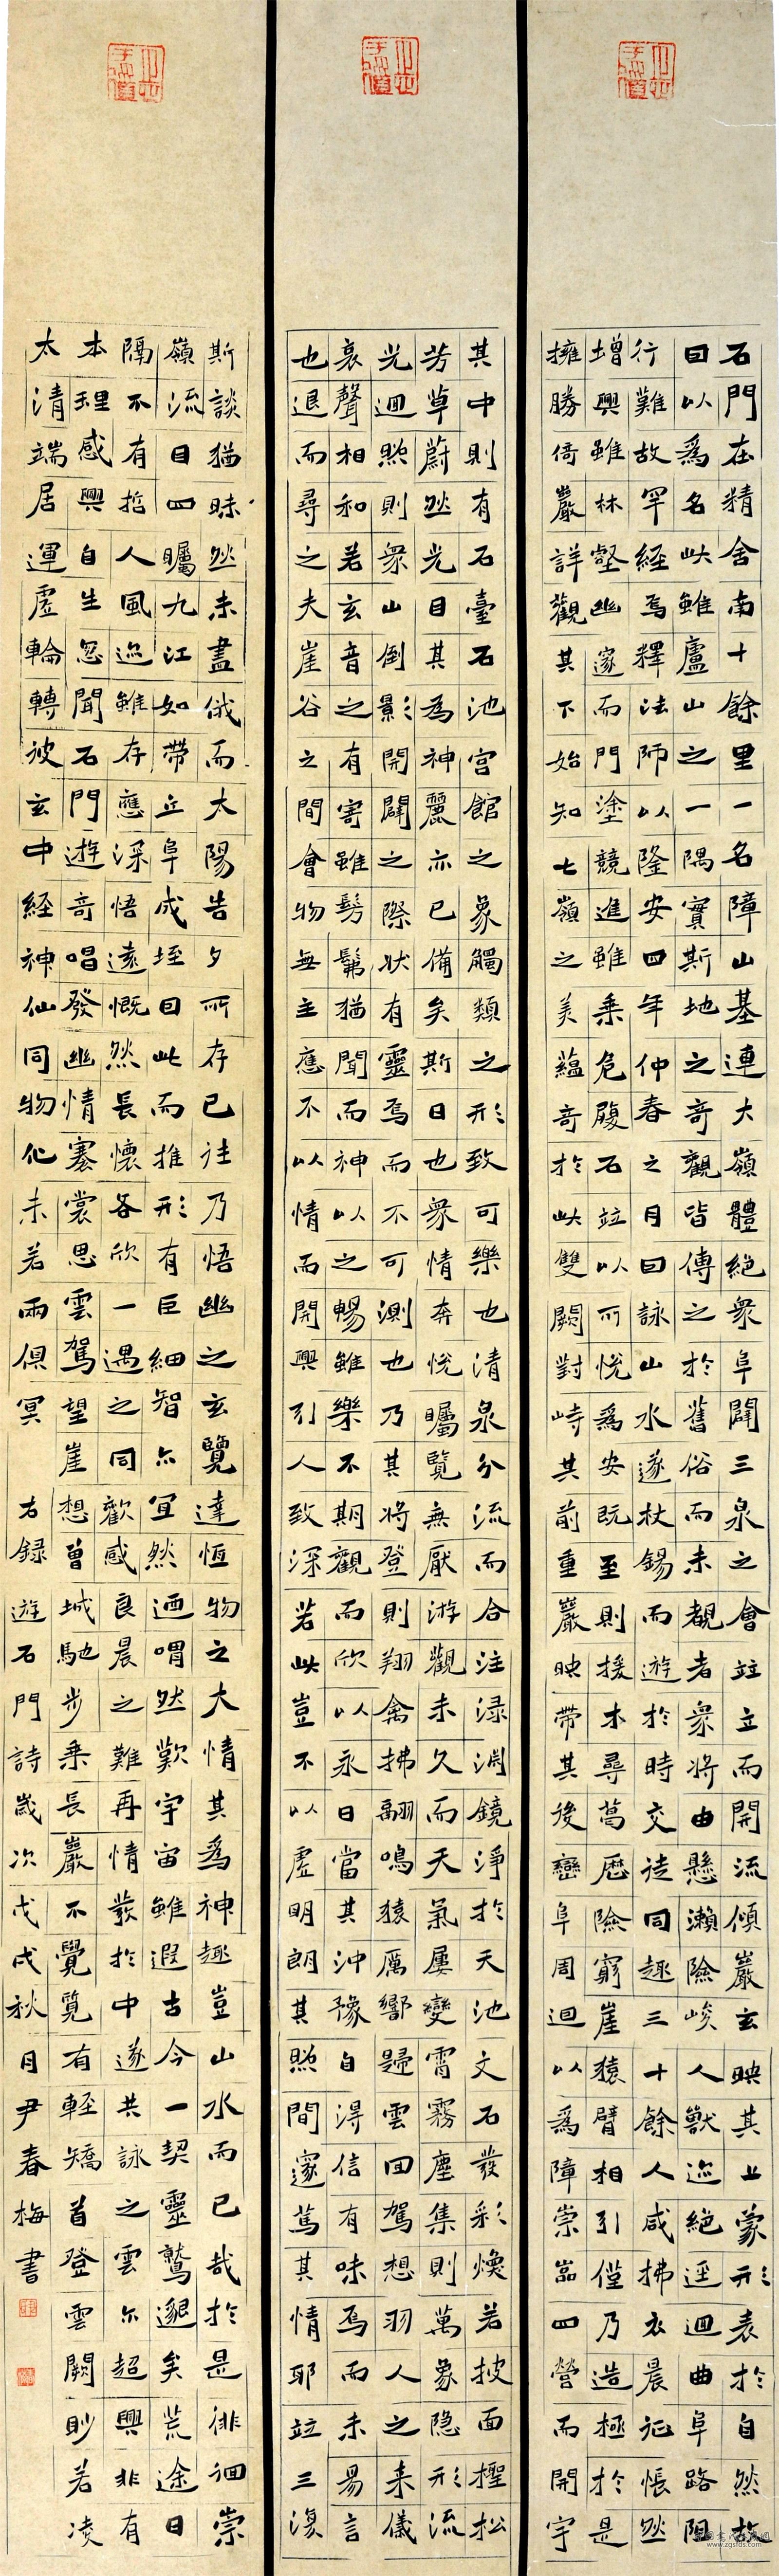 石門在精舍南十餘里一名障山基連大嶺體絕衆阜闢三泉之會竝立而開流傾巖玄映其上蒙形表於自然故
囙以爲名此雖廬山之一隅實斯地之奇觀皆傳之於舊俗而未覩者衆將由懸瀨險峻人獸迹絕逕迴曲阜路阻
行難故罕經焉釋法師以隆安四年仲春之月囙詠山水遂杖錫而遊於時交徒同趣三十餘人咸拂衣晨征悵然
增興雖林壑幽邃而門塗競進雖乘危履石竝以所悅爲安既至則援木尋葛歷險窮崖猿臂相引僅乃造極於是
擁勝倚巖詳觀其下始知七嶺之美蘊奇於此雙闕對峙其前重巖映帶其後巒阜周迴以爲障崇嵓四營而開宇
其中則有石臺石池宮館之象觸類之形致可樂也清泉分流而合注淥淵鏡淨於天池文石發彩煥若披面檉松
芳草蔚然光目其為神麗亦已備矣斯日也衆情奔悅矚覽無厭游觀未久而天氣屢變霄霧塵集則萬象隱形流
光迴照則衆山倒影開闢之際狀有靈焉而不可測也乃其將登則翔禽拂翮鳴猿厲響歸雲回駕想羽人之來儀
哀聲相和若玄音之有寄雖髣髴猶聞而神以之暢雖樂不期觀而欣以永日當其沖豫自得信有味焉而未易言
也退而尋之夫崖谷之間會物無主應不以情而開興引人致深若此豈不以虛明朗其照間邃篤其情耶竝三復
斯談猶昧然未盡俄而太陽告夕所存已往乃悟幽之玄覽達恆物之大情其爲神趣豈山水而已哉於是徘徊崇
嶺流目四矚九江如帶丘阜成垤囙此而推形有巨細智亦宜然迺喟然歎宇宙雖遐古今一契靈鷲邈矣荒途日
隔不有哲人風迹雖存應深悟遠慨然長懷各欣一遇之同歡感良晨之難再情發於中遂共詠之雲尒超興非有
本理感興自生忽聞石門遊奇唱發幽情褰裳思雲駕望崖想曾城馳步乘長巖不覺覽有輕矯首登雲闕眇若凌
太清端居運虛輪轉彼玄中經神仙同物化未若兩俱冥
右錄遊石門詩歲次戊戌秋月尹春梅書